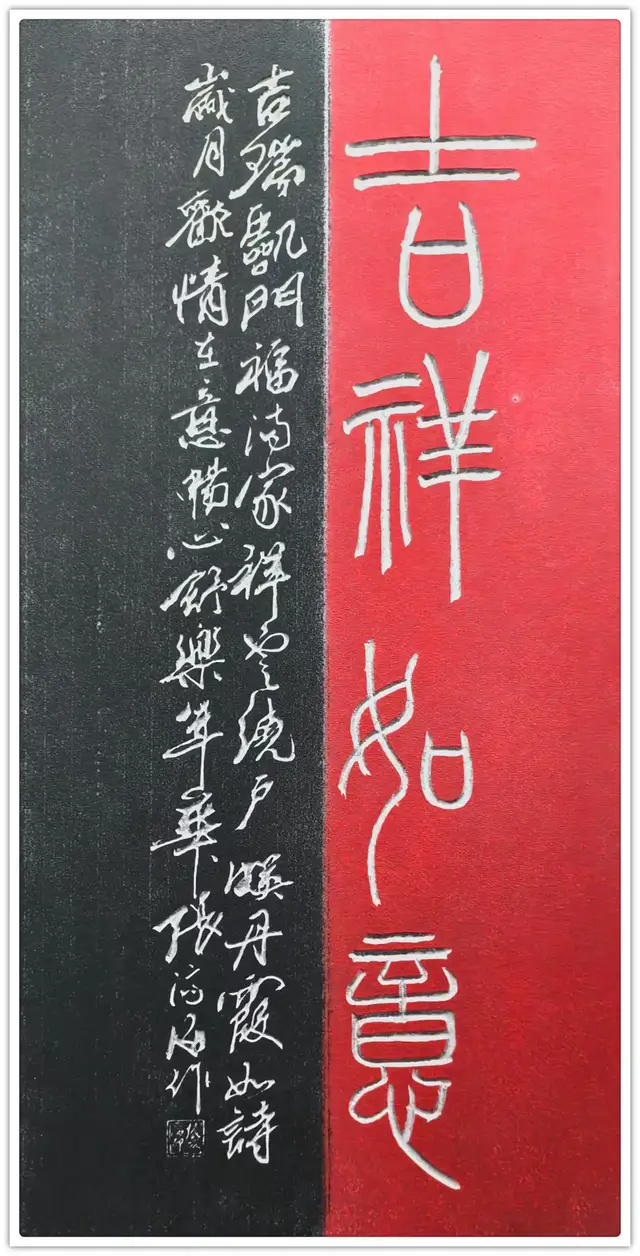 吉祥如意
吉瑞臨門福滿家祥雲繞戶暎丹霞如詩
歲月歡情在意暢心舒樂年華張作